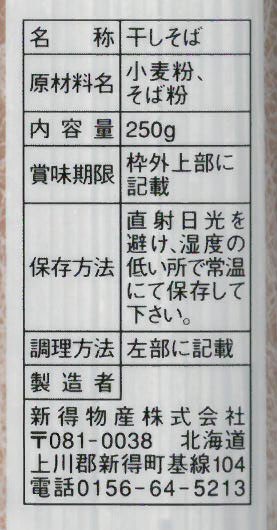 名称 干しそば
原材料名 小麦粉、
そば粉
内容量 250g
賞味期限 枠外上部に
記載
保存方法 直射日光を
避け、湿度の
低い所で常温
にて保存して
下さい。
調理方法 左部に記載
製造者
新得物産株式会社
〒081-0038 北海道
上川郡新得町基線104
電話0156-64-5213